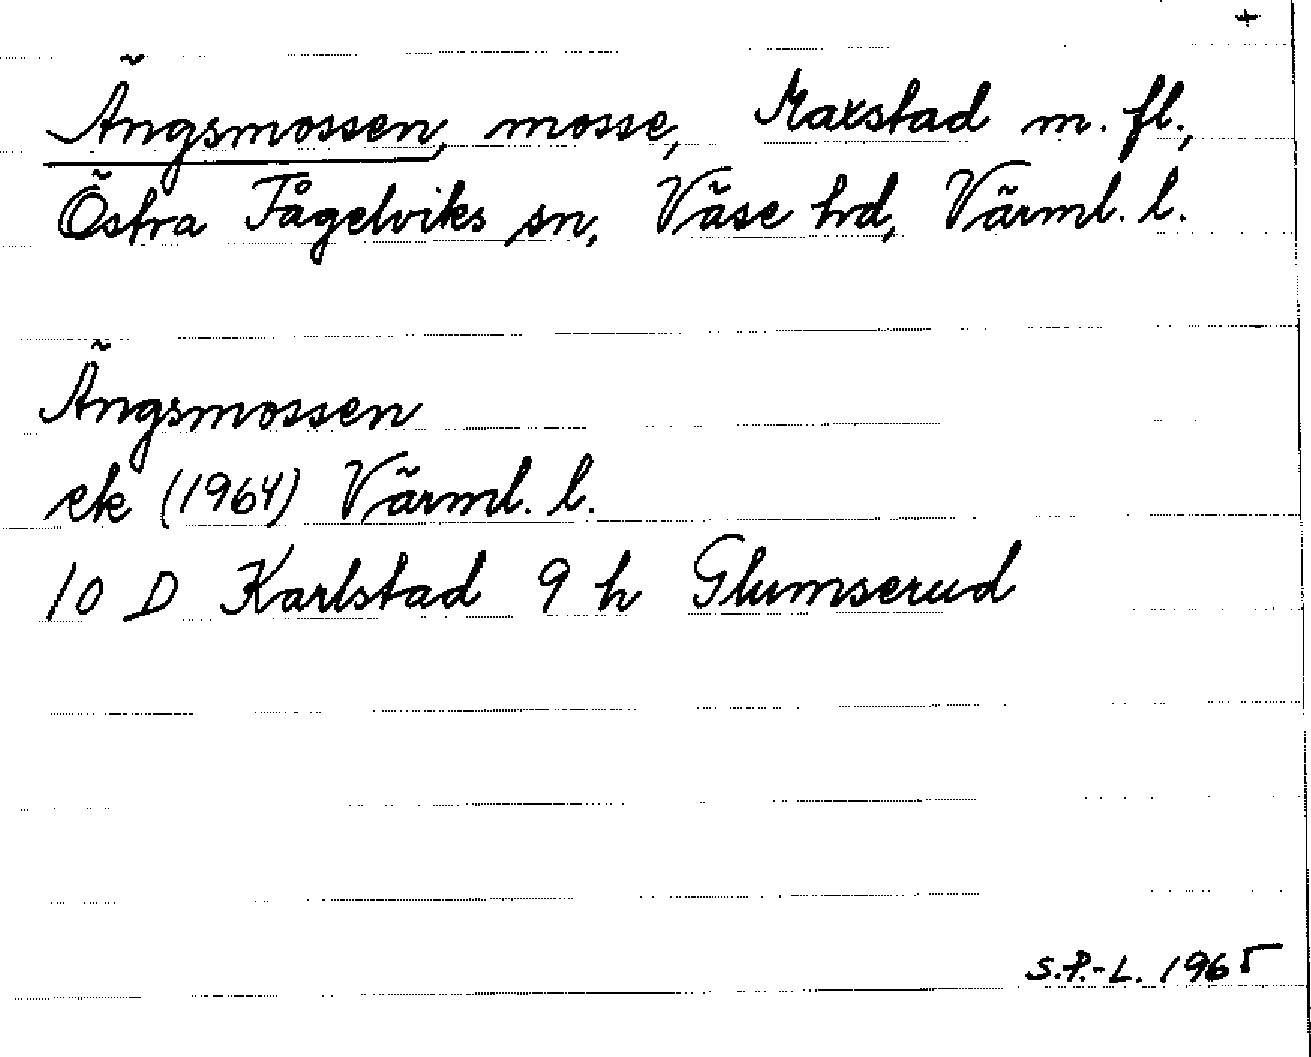 +
Ängsmossen, mosse, Maxstad m. fl.,
Östra Fågelviks sn, Väse hd, Värml. l.
Ängsmossen
ek (1964) Värml. l.
10 D Karlstad 9 h Glumserud
S.P.-L. 1965